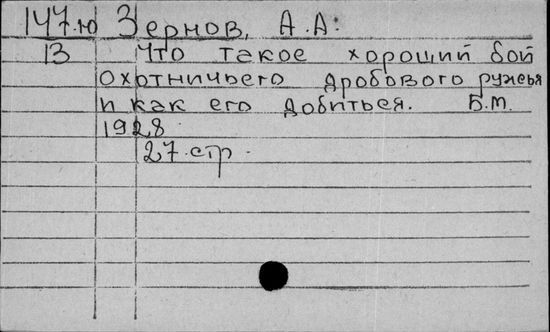 147.ю Зернов, А.А.
13 Что такое хороший бой
охотничьего дробового ружья
и как его добиться. Б.М.
1928
27.стр.